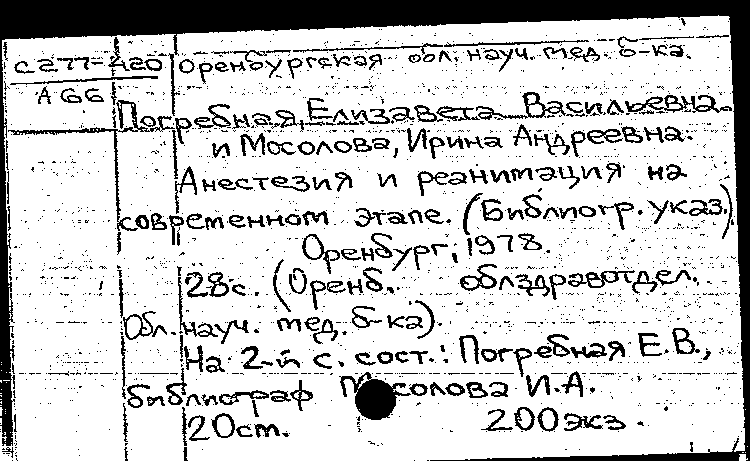 С277-420 Оренбургская обл. науч. мед. б-ка.
А 66
Погребная, Елизавета Васильевна.
и Мосолова, Ирина Андреевна.
Анестезия и реанимация на
современном этапе. (Библиогр. указ.)
Оренбург, 1978.
28с. (Оренб. облздравотдел.
Обл. науч. мед. б-ка).
На 2-й с. сост.: Погребная Е.В.,
библиограф Мосолова И.А.
20см. 200экз.